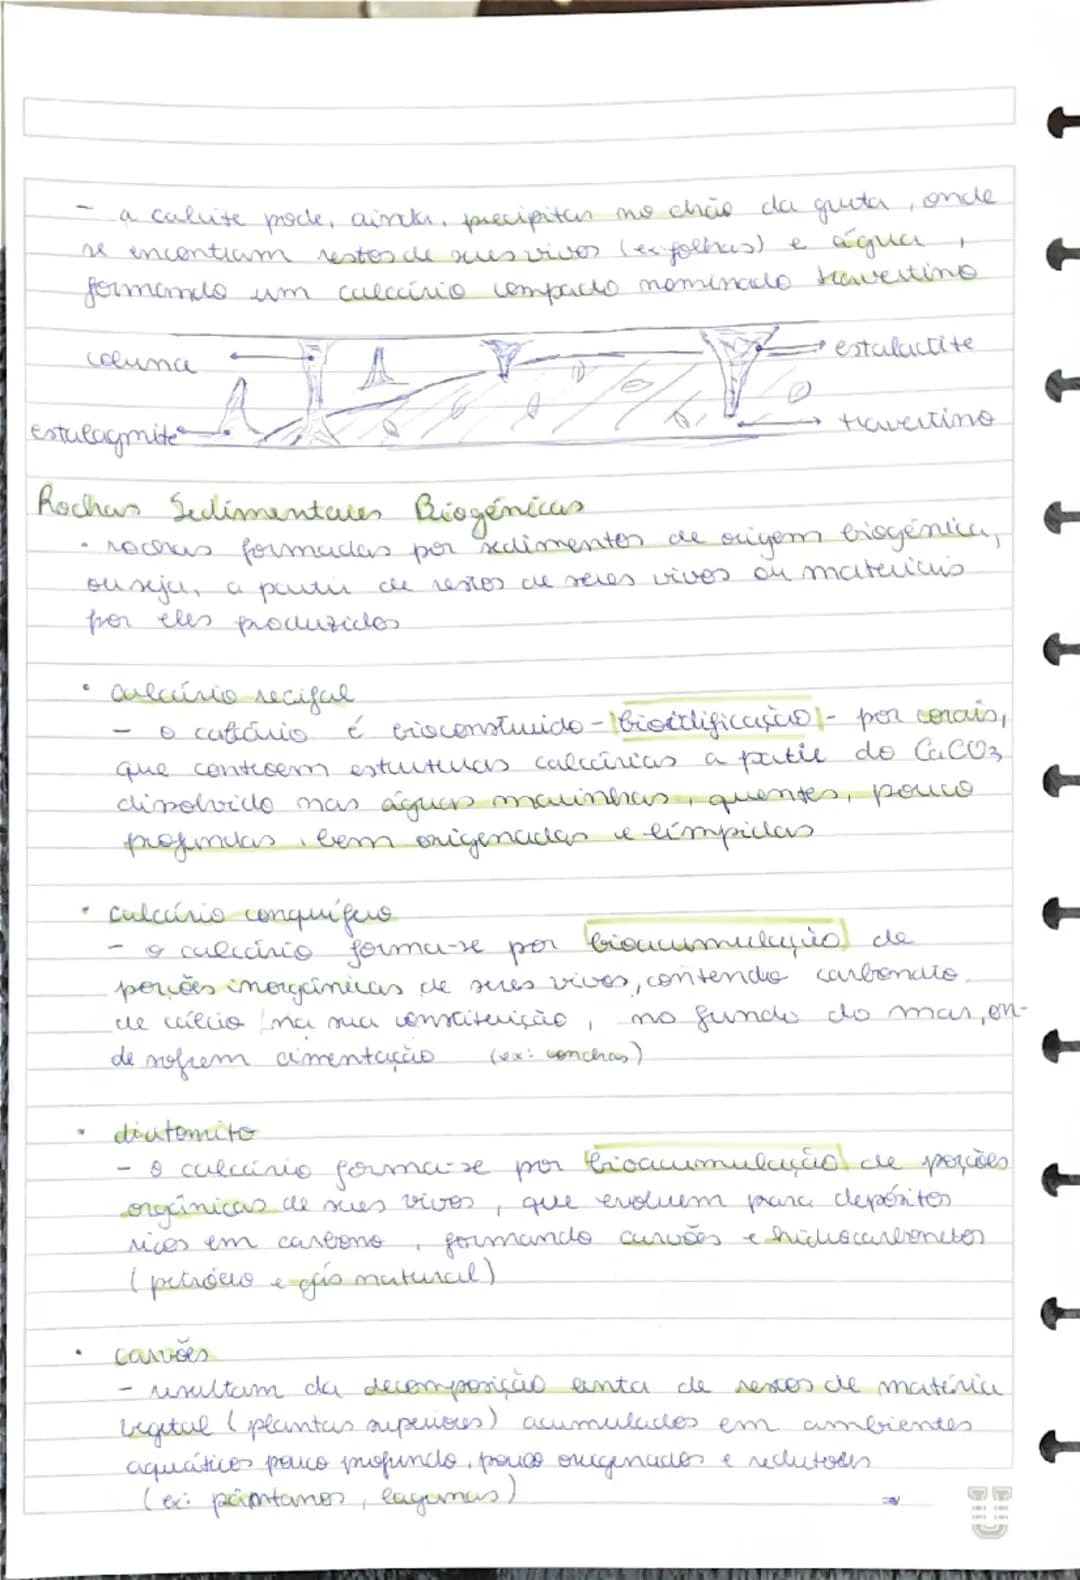 - a calcite pode, ainda, precipitar no chão da gruta, onde
se encontram restos de seres vivos (ex: folhas) e água,
formando um calcário compacto nominado travertino
coluna
estalactite
estalagmite
travertino
Rochas Sedimentares Biogénicas
• rochas formadas por sedimentos de origem biogénica,
ou seja, a partir de restos de seres vivos ou materiais
por eles produzidos
• calcário recifal
- o calcário é bioconstruido - bioedificação - por corais,
que controem estruturas calcárias a partir do CaCO3
dissolvido nas águas marinhas, quentes, pouco
profundas, bem origenadas e límpidas
• calcário conquífero
- o calcário forma-se por bioacumulação de
porções inorgânicas de seres vivos, contendo carbonato
de cálcio na sua constituição, no fundo do mar, on-
de sofrem cimentação (ex: conchas)
• diatomito
- o calcário forma-se por bioacumulação de porções
orgânicas de seres vivos, que evoluem para depósitos
ricos em carbono, formando carvões e hidrocarbonetos
(petróleo e gás natural)
• carvões
- resultam da decomposição lenta de restos de matéria
vegetal (plantas superiores) acumulados em ambientes
aquáticos pouco profundo, pouco origenados e redutores
(ex: pântanos, lagunas)